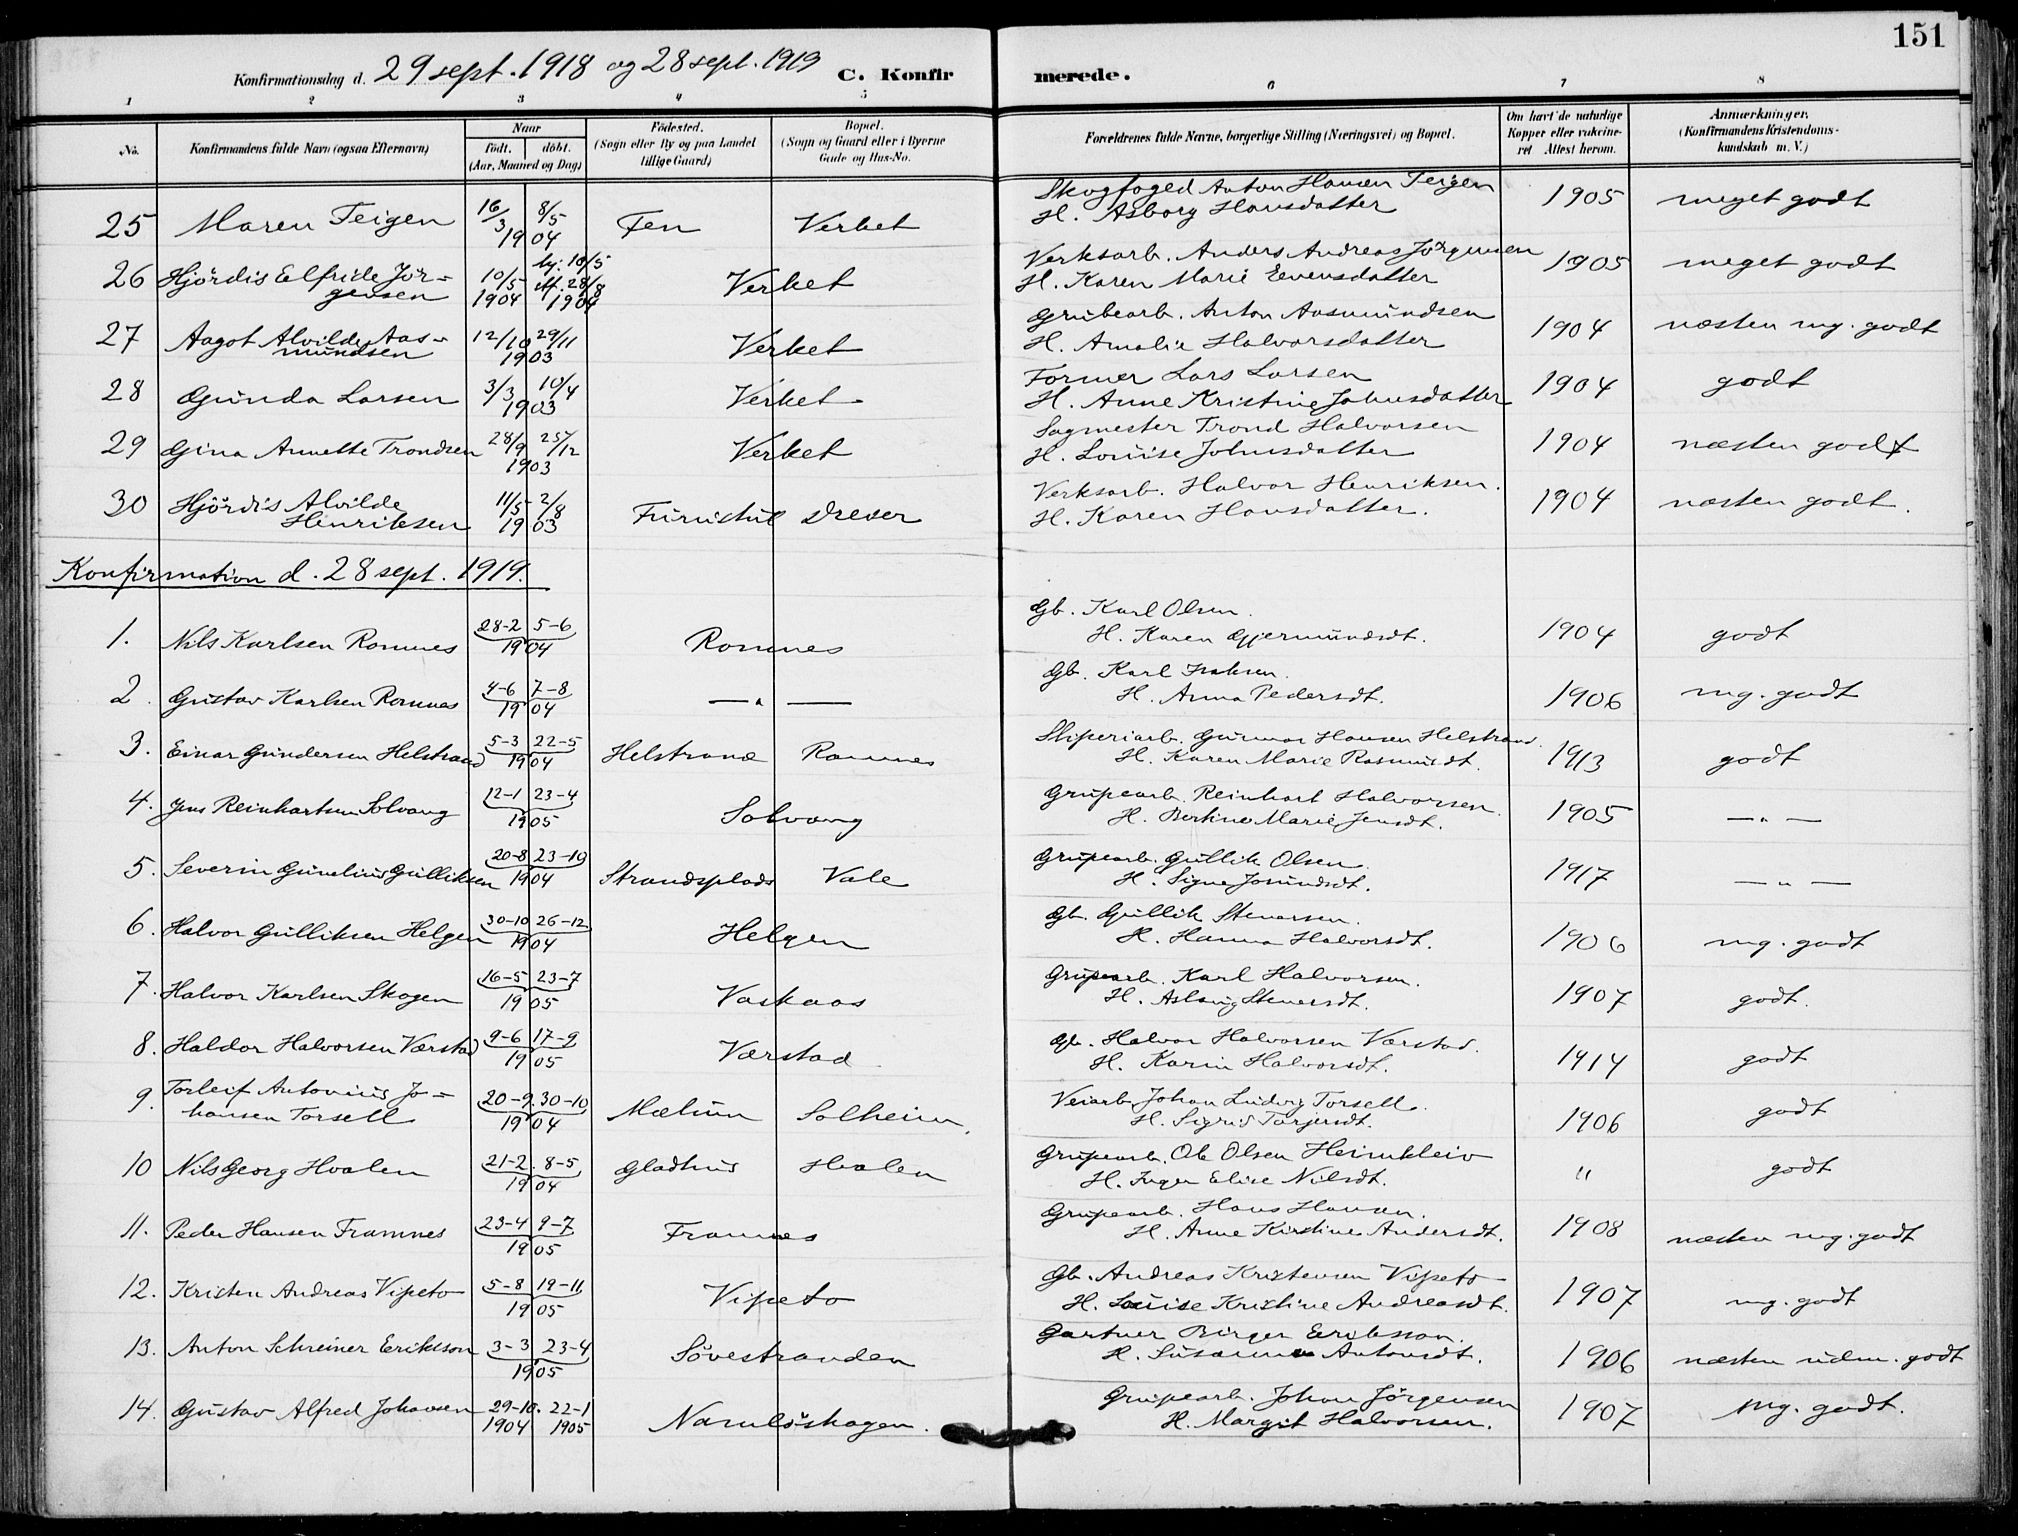 151
Konfirmationsdag d. 29 sept. 1918 og 28 sept. 1919 C. Konfirmerede.
1 2 3 4 5 6 7 8
No. Konfirmandens fulde Navn (ogsaa Efternavn) Naar født. døbt. (Aar, Maaned og Dag) Fødested. (Sogn eller By og paa Landet tillige Gaard) Bopæl. (Sogn og Gaard eller i Byerne Gade og Hus-No. Forældrenes fulde Navne, borgerlige Stilling (Næringsvei) og Bopæl. Om havt de naturlige Kopper eller vaksineret Attest herom. Anmærkninger. (Konfirmandens Kristendomskundskab m. V.)
25 Maren Teigen 16/3 8/5 1904 Fen Verket Skogfoged Anton Hansen Teigen H. Asborg Hansdatter 1905 meget godt
26 Hjördis Elfride Jörgensen 10/5 1904 hj. 10/5 28/8 1904 Verket Verksarb. Anders Andreas Jörgensen H. Karen Marie Evensdatter 1905 meget godt
27 Aagot Alvilde Aasmundsen 12/10 29/11 1903 Verket Grubearb. Anton Aasmundsen H. Amalie Halvorsdatter 1904 næsten mg. godt
28 Gunda Larsen 3/3 10/4 1903 Verket Former Lars Larsen H. Anne Kristine Johnsdatter 1904 godt
29 Gina Annette Trondsen 28/9 25/12 1903 Verket Sagmester Trond Halvorsen H. Louise Johnsdatter 1904 næsten godt
30 Hjördis Alvilde Henriksen 11/5 2/8 1903 Furustul Drever Verksarb. Halvor Henriksen. H. Karen Hansdatter. 1904 næsten godt.
Konfirmation d. 28 sept. 1919.
1. Nils Karlsen Romnes 28-2 5-6 1904 Romnes Gb. Karl Olsen. H. Karen Gjermundsdt. 1904 godt
2. Gustav Karlsen Romnes 4-6 7-8 1904 — " — Gb. Karl Isaksen. H. Anna Pedersdt. 1906 mg. godt
3. Einar Gundersen Helstrand 5-3 22-5 1904 Helstrand Romnes Sliperiarb. Gunnar Hansen Helstrand. H. Karen Marie Rasmusdt. 1913 godt
4. Jens Reinhartsen Solvang 12-1 23-4 1905 Solvang Grupearb. Reinhart Halvorsen. H. Bertine Marie Jensdt. 1905 — " —
5. Severin Gunelius Gulliksen 20-8 23-10 1904 Strandsplads Vale Grupearb. Gullik Olsen. H. Signe Josundsdt. 1917 — " —
6. Halvor Gulliksen Helgen 30-10 26-12 1904 Helgen Gb. Gullik Stenersen. H. Hanna Halvorsdt. 1906 mg. godt
7. Halvor Karlsen Skogen 16-5 23-7 1905 Vaskaas Grupearb. Karl Halvorsen. H. Aslaug Stenersdt. 1907 godt.
8. Haldor Halvorsen Værstad 9-6 17-9 1905 Værstad Gb. Halvor Halvorsen Værstad. H. Karin Halvorsdt. 1914 godt
9. Torleif Antonius Johansen Torsell 20-9 30-10 1904 Mælum Solheim. Veiarb. Johan Ludvig Torsell. H. Sigrid Torjersdt. 1906 godt
10 Nils Georg Hvalen 21-2. 8-5 1904 Gladhus Hvalen Grupearb. Ole Olsen Heimkleiv H. Inger Elise Nilsdt. " godt
11. Peder Hansen Framnes 23-4 9-7 1905 Framnes Grupearb. Hans Hansen. H. Anne Kirstine Andersdt. 1908 næsten mg. godt
12. Kristen Andreas Vipeto 5-8 19-11 1905 Vipeto Gb. Andreas Kristensen Vipeto H. Louise Kristine Andreasdt. 1907 mg. godt
13. Anton Schreiner Eriksson 3-3 23-4 1905 Sövestranden Gartner Birger Eriksson. H. Susanne Antonsdt. 1906 næsten udm. godt
14. Gustav Alfred Johansen 29-10. 1904 22-1 1905 Namlöskogen. Grupearb. Johan Jörgensen H. Margit Halvorsen. 1907 Mg. godt.